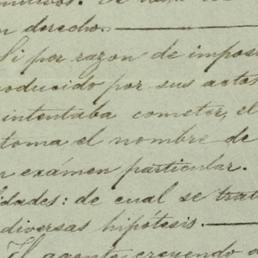 n derecho.—
Si por razon de impos
roducido por sus actos
intentaba cometer, el
toma el nombre de
n exámen particular.
dades: de cual se trat
diversas hipótesis.—
El agente creyendo